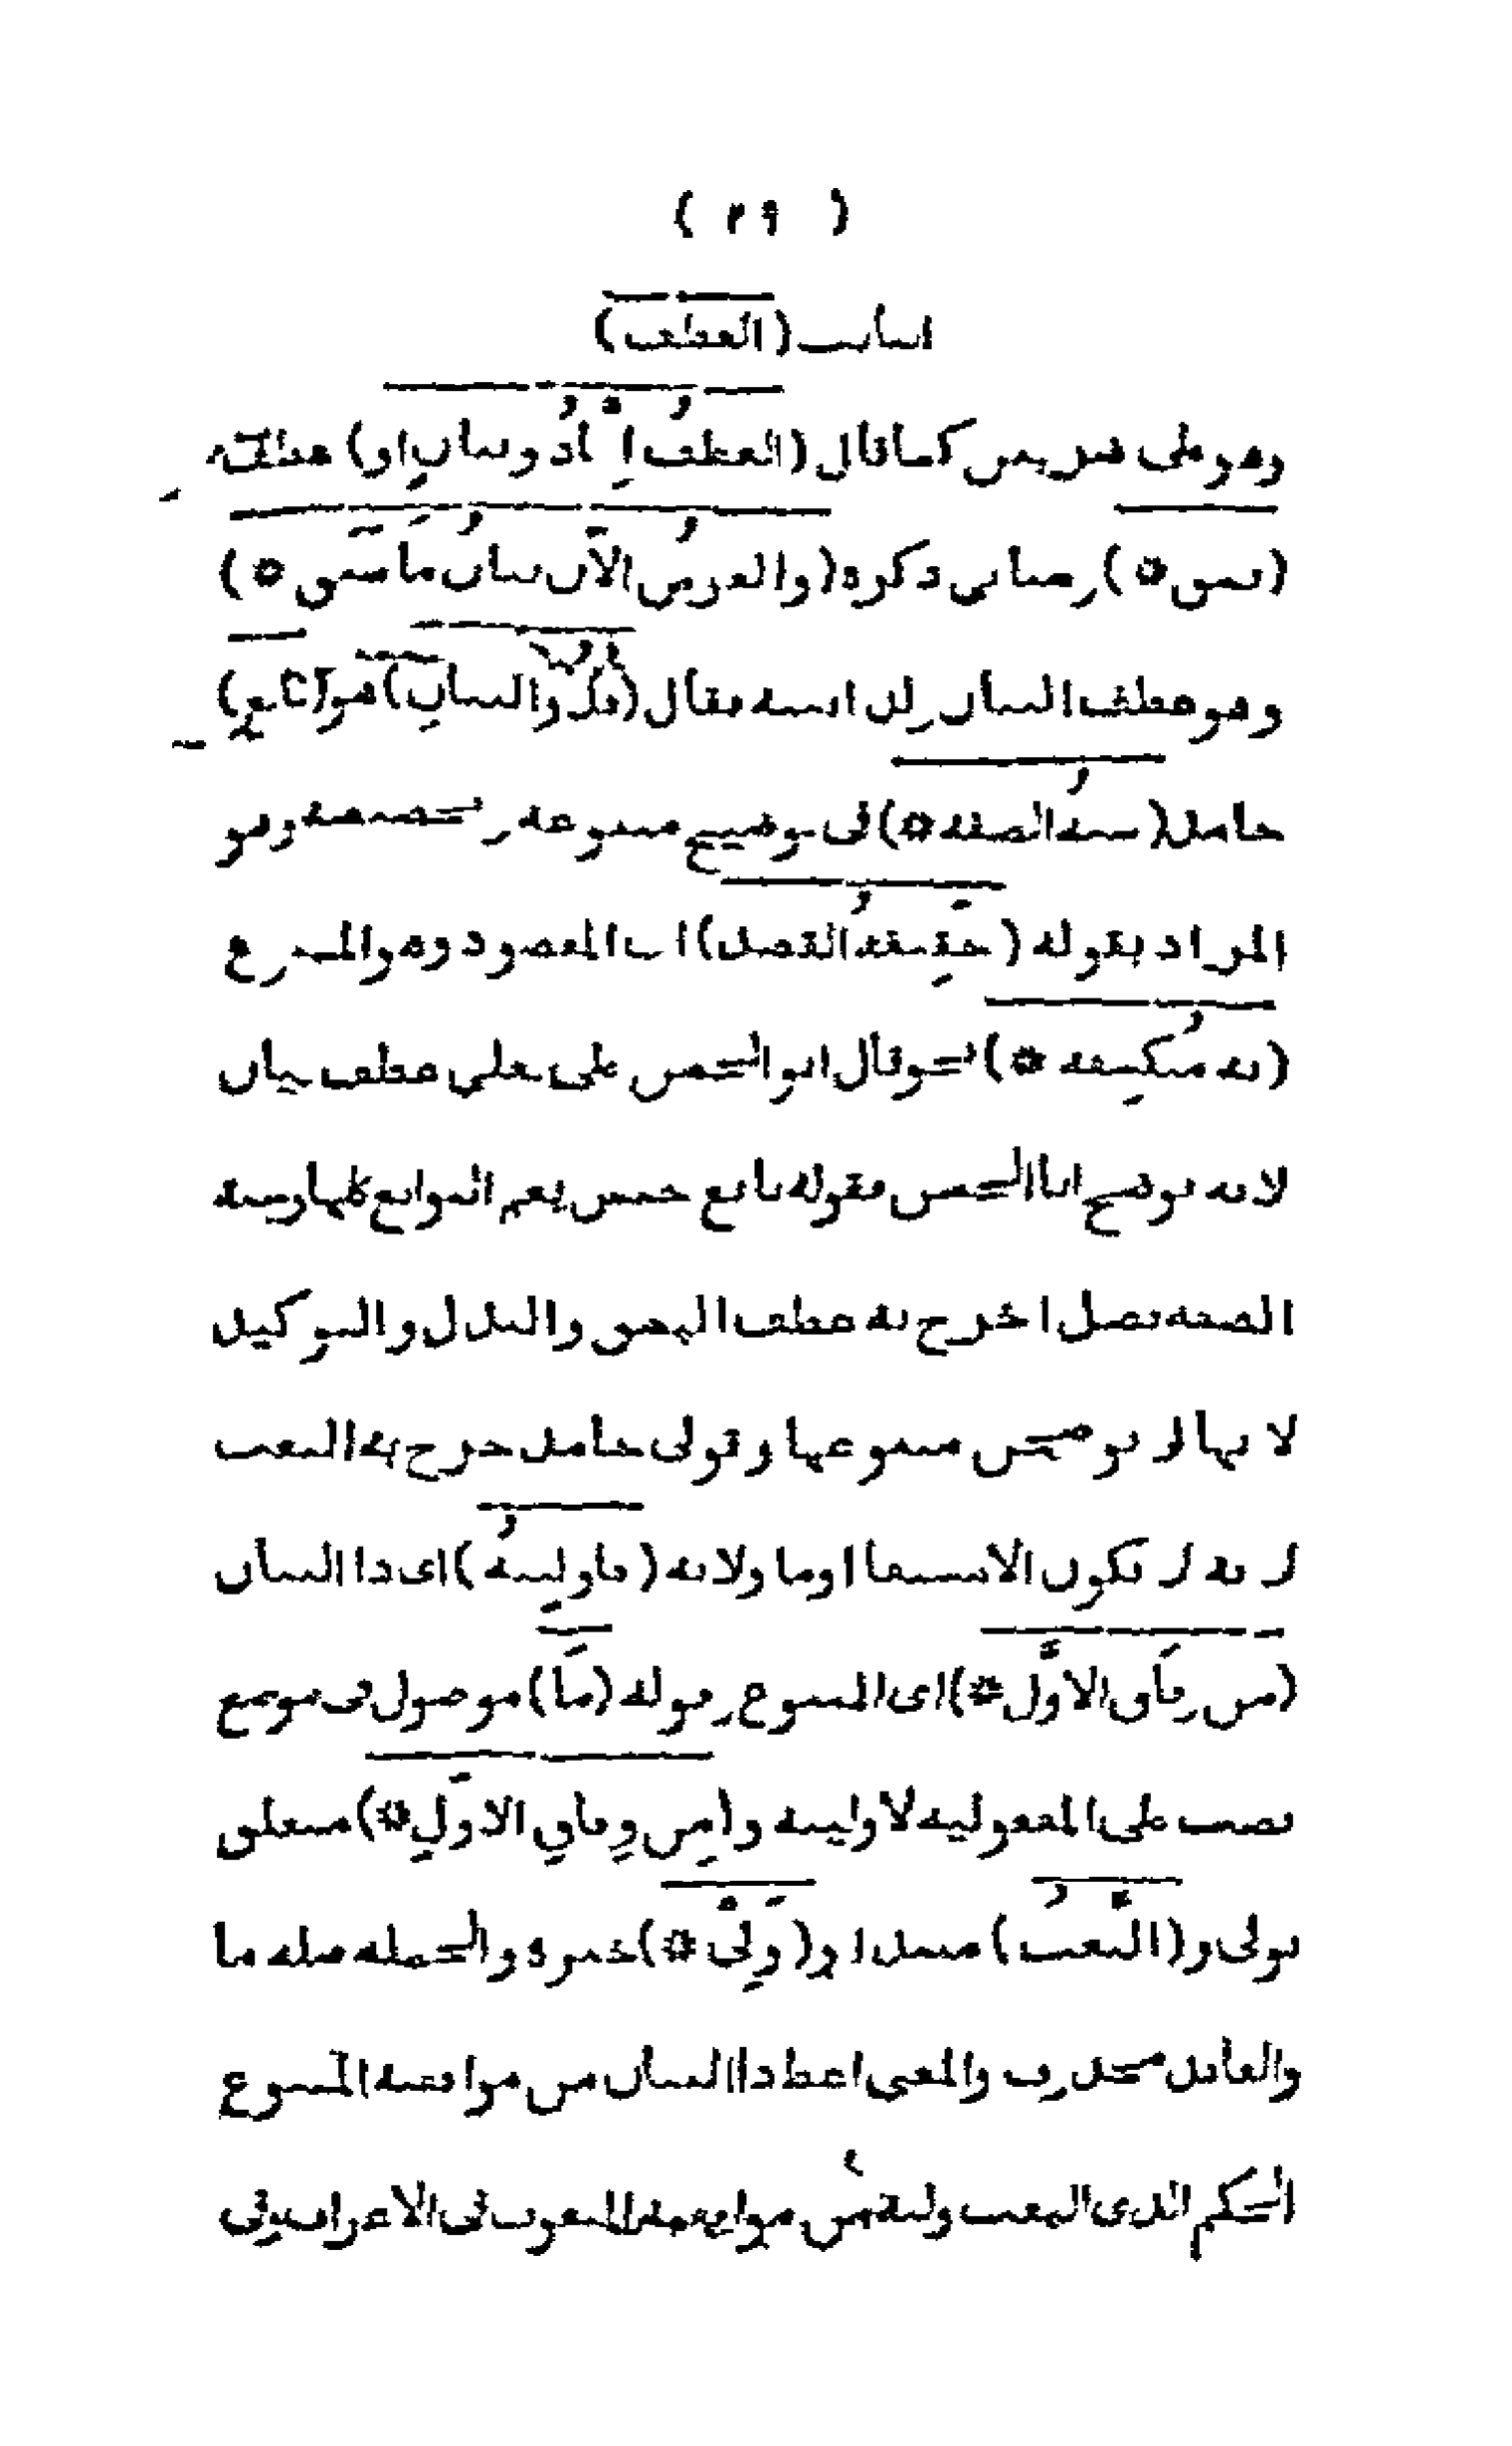 ( ٢٩ )
باب (العطف)
وهو على ضربين كما قال (العطف إما ذو بيان أو) عطف
(نسق *) وسيأتي ذكره (والغرض الآن بيان ما سبق *)
وهو عطف البيان ولذا فقال (فذو البيان) هو (تابع)
جامد (شبه الصفة *) في توضيح متبوعه وتخصيصه وهو
المراد بقوله (حقيقة القصد) اى المقصود وهو المتبوع
(به منكشفه *) نحو قال ابو الحسن على فعلى عطف بيان
لانه توضيح ابا الحسن فقوله تابع جنس يعم التوابع كلها وشبه
الصفة فصل اخرج به عطف النسق والبدل والتوكيد
لانها لا توضحن متبوعها وقولى جامد خرج به النعت
لانه لا يكون الا مشتقا او ما ولا به (فاولينه) اى ذا البيان
(من وفاق الاول *) اى المتبوع وقوله (ما) موصول فى موضع
نصب على المفعوليه لاولينه و(من وفاق الاول *) متعلق
بولى و(النعت) مبتدا و(ولى *) خبره والجمله صله ما
والعائد محذوف والمعنى اعط ذا البيان من موافقة المتبوع
الحكم الذى النعت وليه من موافقة المنعوت فى الاعراب وفى